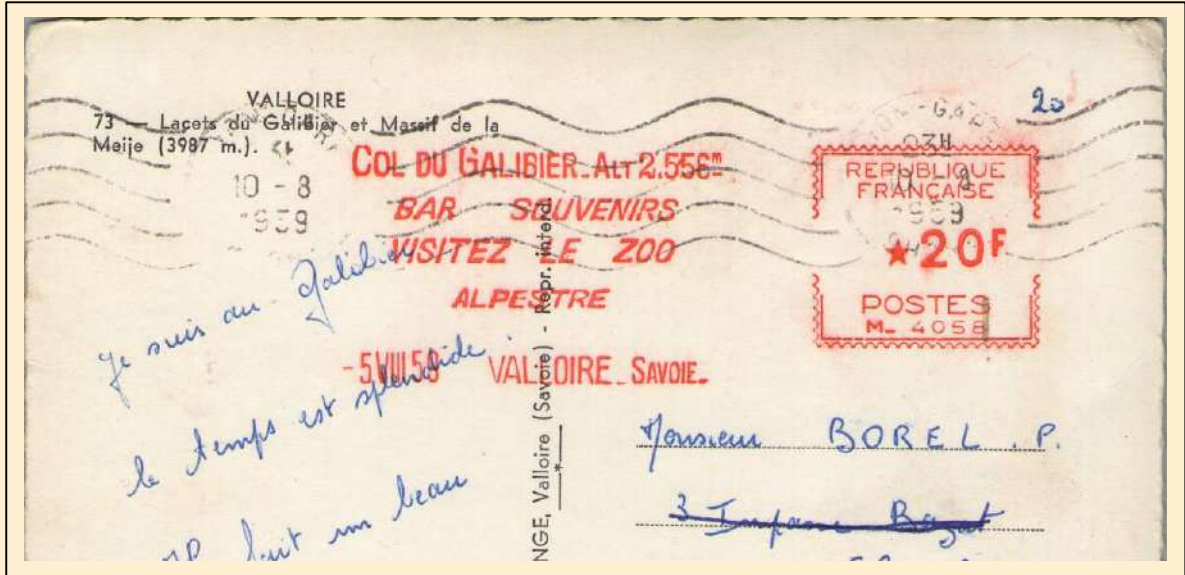 VALLOIRE
73 — Lacets du Galibier et Massif de la
Meije (3987 m.).
10 - 8
1959
COL DU GALIBIER_ALT 2.556m
BAR SOUVENIRS
VISITEZ LE ZOO
ALPESTRE
- 5 VIII 59 VALLOIRE_SAVOIE.
20
GARE
03H
1959
REPUBLIQUE
FRANÇAISE
★20F
POSTES
M_ 4058
Je suis au Galibier
le temps est splendide.
fait un beau
NGE, Valloire (Savoie) - Repr. interd.
Monsieur BOREL. P.
3 Impasse